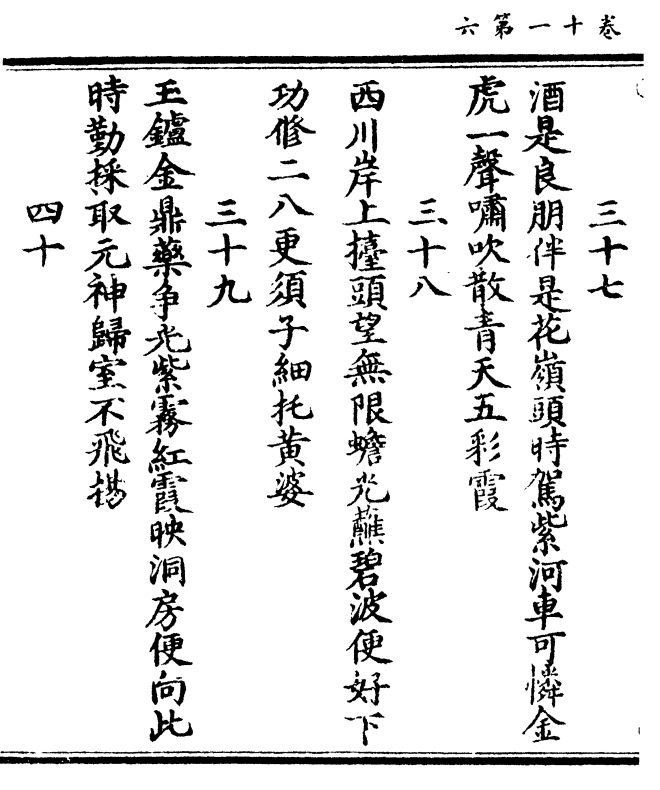 卷十一第六
三十七
酒是良朋伴是花嶺頭時駕紫河車可憐金
虎一聲嘯吹散青天五彩霞
三十八
西川岸上擡頭望無限蟾光蘸碧波便好下
功修二八更須子細托黄婆
三十九
玉鑪金鼎藥争光紫霧紅霞映洞房便向此
時勤採取元神歸室不飛揚
四十